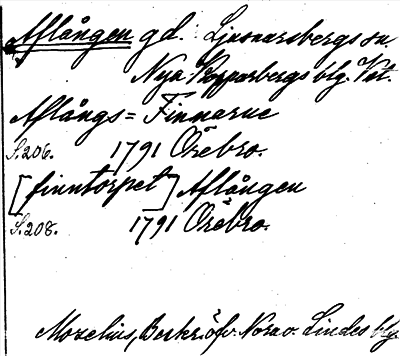 Aflången gd. Ljusnarsbergs sn.
Nya Kopparbergs blg. Vst.
Aflångs = Finnarne
S. 206. 1791 Örebro.
[finntorpet] Aflången
S. 208. 1791 Örebro.
Mozelius, Beskr. öfv. Nora o. Lindes blg.